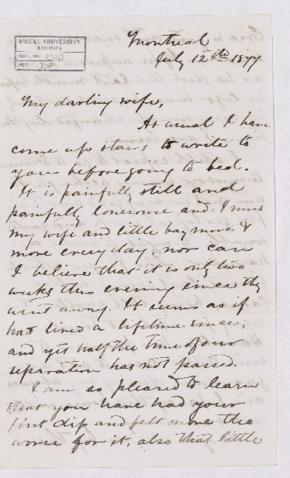 Montreal
July 12th 1877
McGILL UNIVERSITY
ARCHIVES
ACC. NO.
REF.
My darling wife,
As usual I have
come up stairs to write to
you before going to bed.
It is painfully still and
painfully lonesome and I miss
my wife and little boy more &
more every day, nor can
I believe that it is only two
weeks this evening since they
went away. It seems as if
had lived a lifetime since,
and yet half the time of our
separation has not passed.
I am so pleased to learn
that you have had your
first dip and felt none the
worse for it, also that little